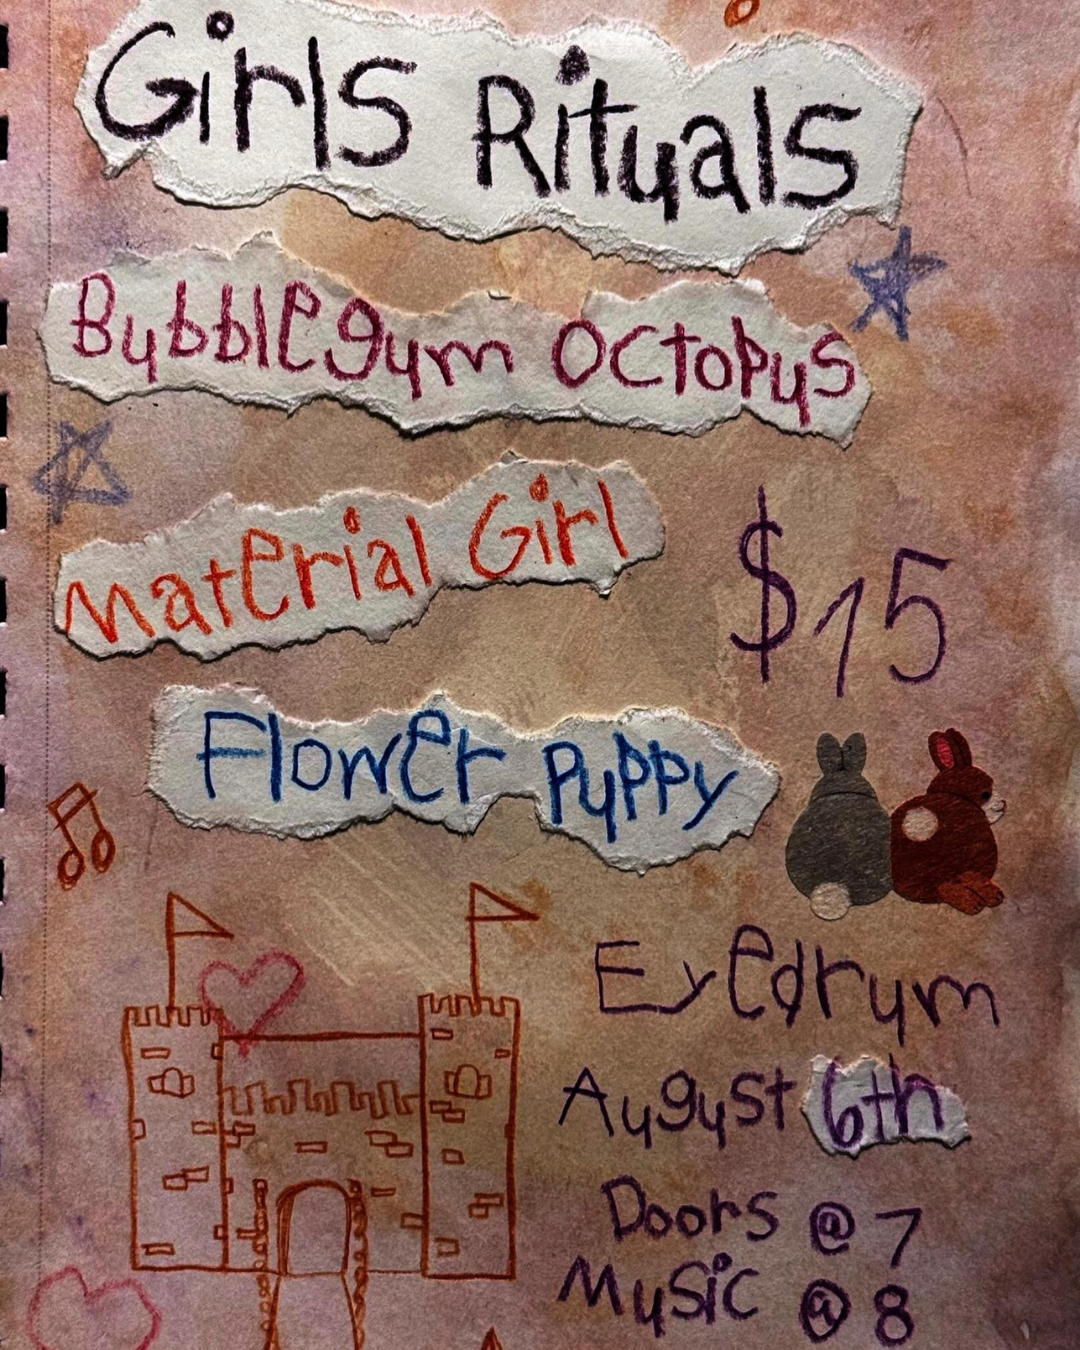 Girls Rituals
Bubblegum Octopus
Material Girl
$15
Flower Puppy
Eyedrum
August 6th
Doors @ 7
Music @ 8